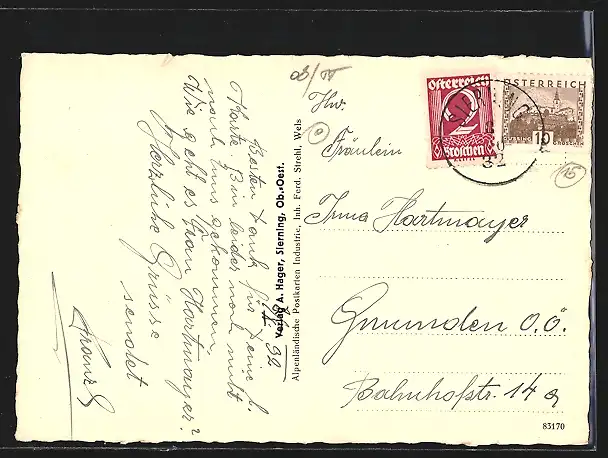 OB/IV
Besten Dank für Deine l.
Karte. Bin leider noch nicht
nach Ens gekommen.
Wie geht es Frau Hartmayer?
Herzliche Grüsse
sendet
Franz
32
Verlag A. Hager, Sierning, Ob.-Oest.
Alpenländische Postkarten Industrie, Inh. Ferd. Strehl, Wels
Österreich
2
Groschen
ÖSTERREICH
10
GROSCHEN
SIERNING
32
15
Hw.
Fräulein
Irma Hartmayer
Gmunden O.Ö.
Bahnhofstr. 14 a
83170